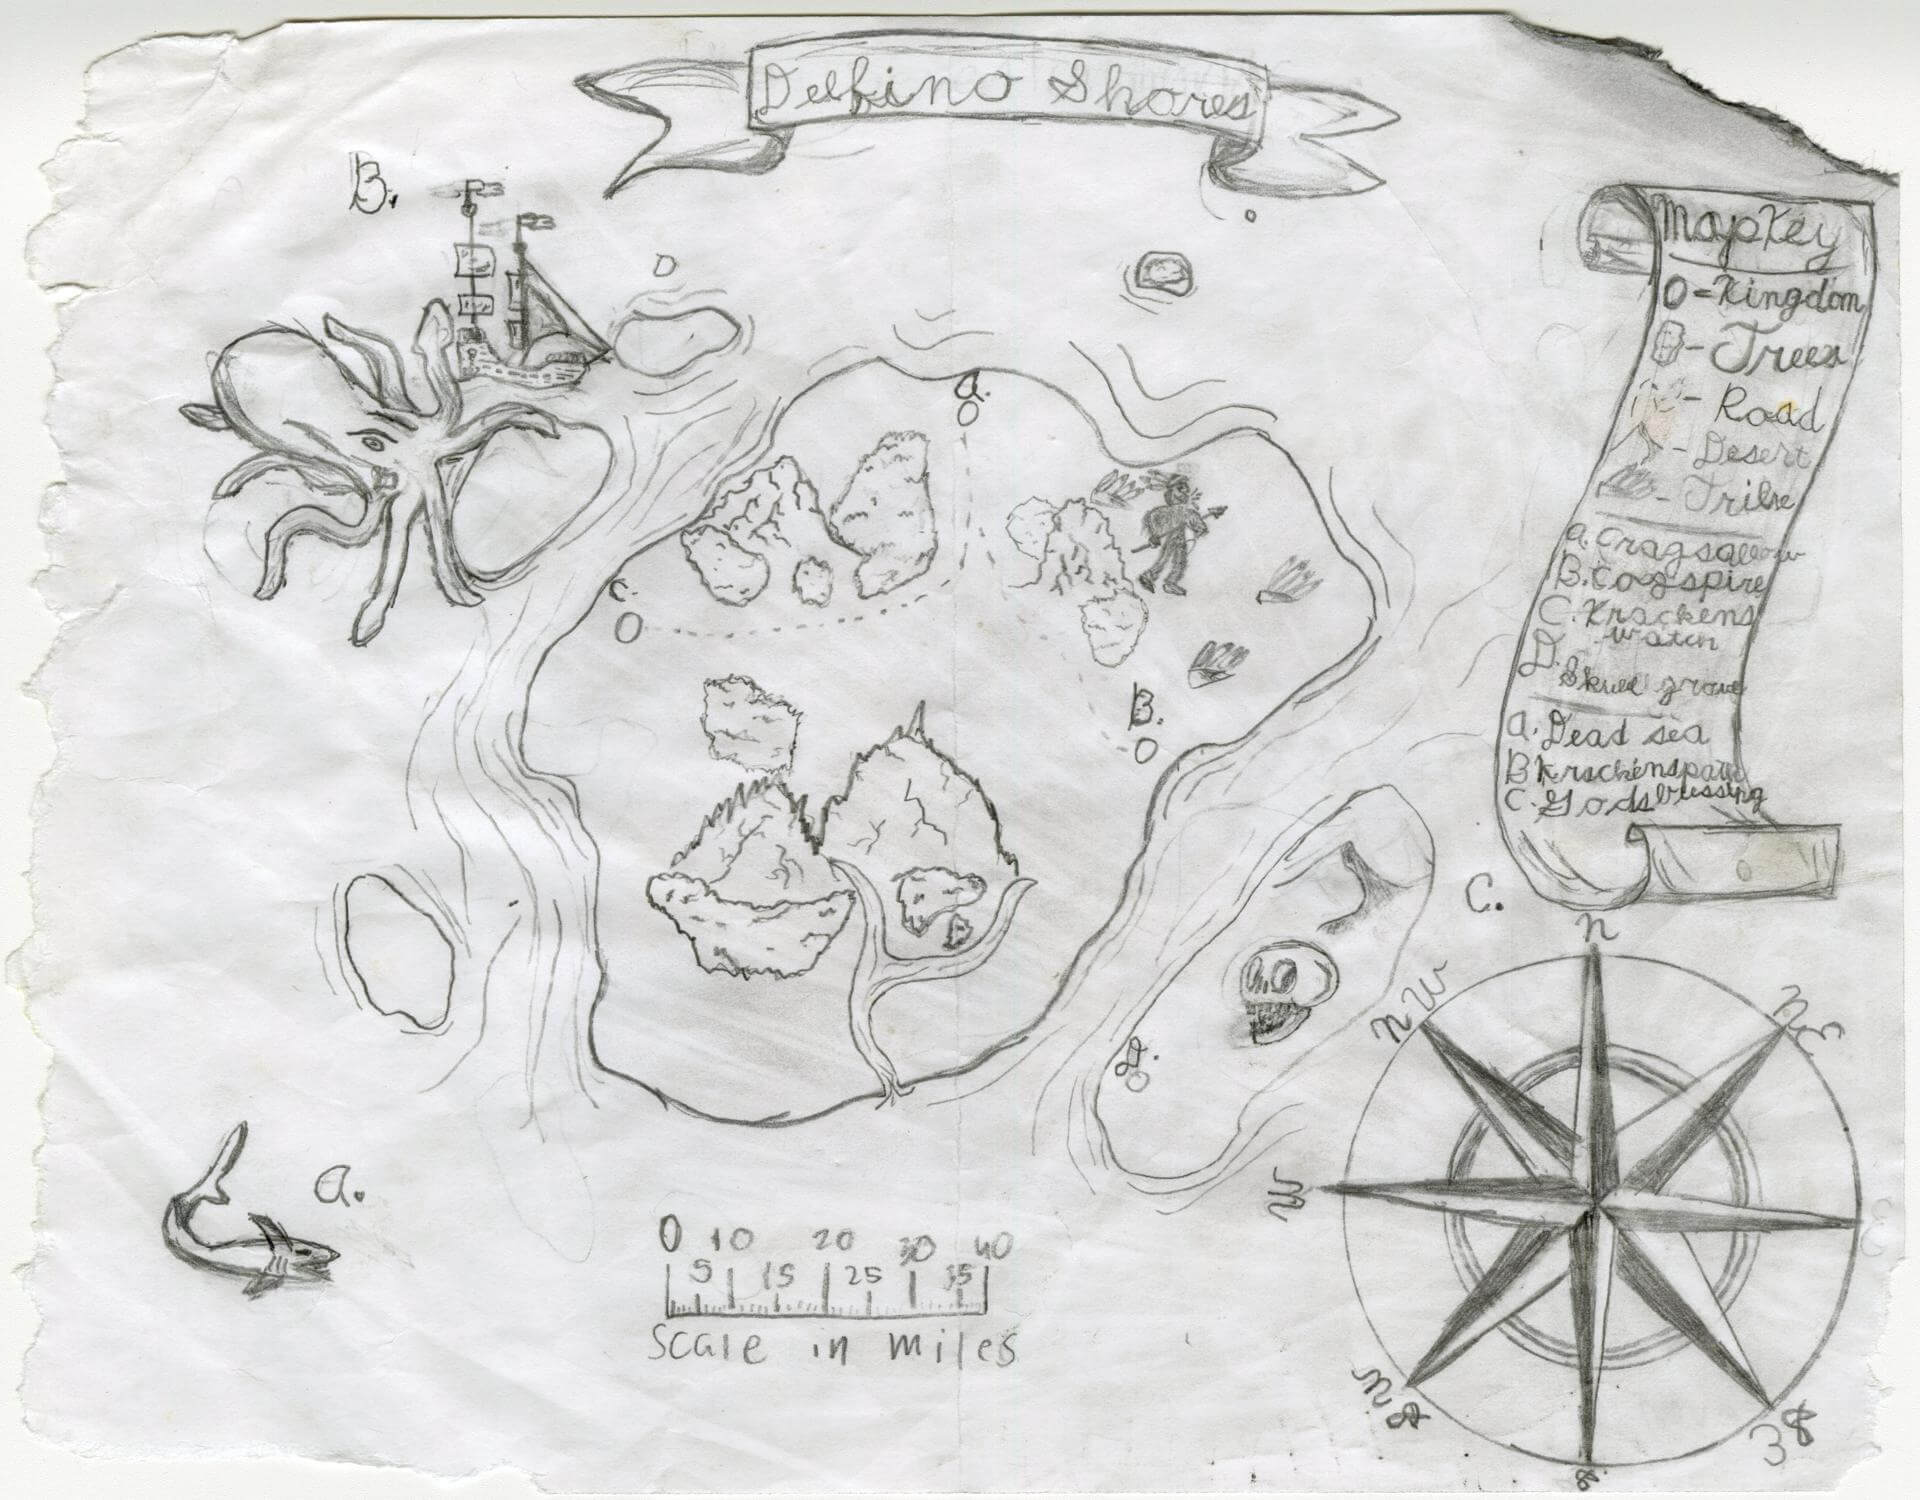 Delfino Shores
B.
D
Map Key
O = Kingdom
- Trees
- Road
- Desert
- Tribe
a.
B. Cogspire
C. Krackens
watch
D.
Skull grove
a. Dead sea
B Krackenspath
C. Gods blessing
a.
C.
B.
C.
D.
a.
n
nw
n3
w
3
w8
38
8
0 10 20 30 40
5 15 25 35
Scale in miles